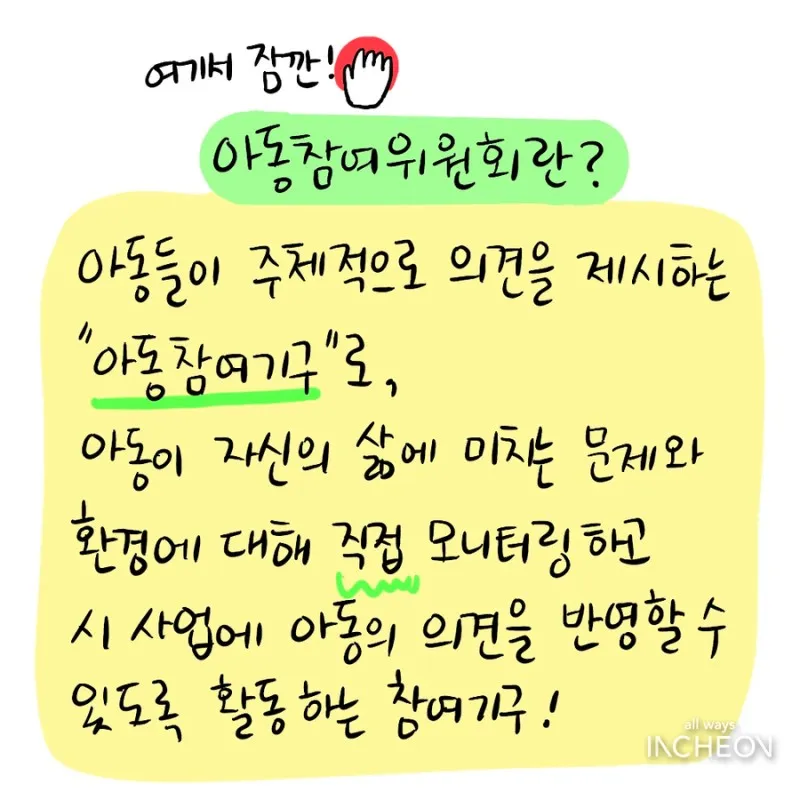 여기서 잠깐!
아동참여위원회란?
아동들이 주체적으로 의견을 제시하는
"아동참여기구"로,
아동이 자신의 삶에 미치는 문제와
환경에 대해 직접 모니터링하고
시 사업에 아동의 의견을 반영할 수
있도록 활동하는 참여기구!
all ways
INCHEON